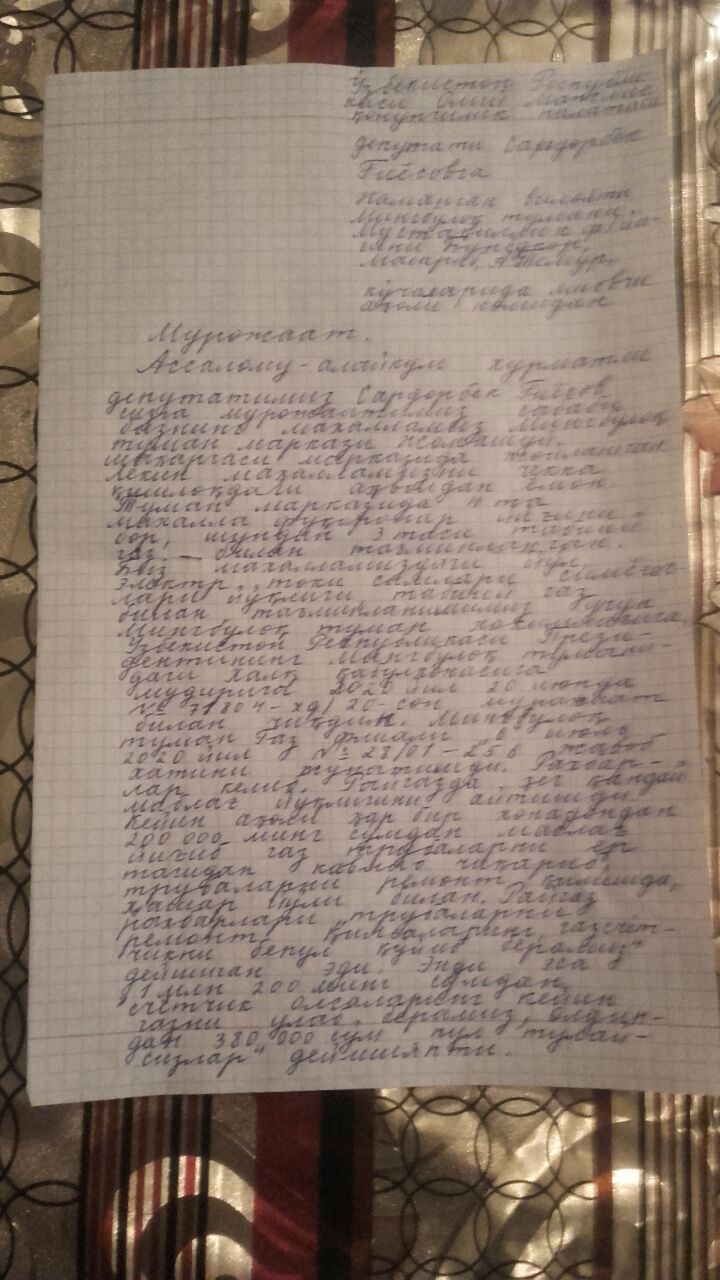 Ўзбекистон Республи-
каси Олий Мажлис
қонунчилик палатаси
депутати Сардорбек
Ғиёсовга
Наманган вилояти
Мингбулоқ тумани.
Мустақиллик фуқа-
Бунёдкор,
А.Темур,
кўчаларида яшовчи
аҳоли номидан
Мурожаат.
Ассалому-алайкум хурматли
депутатимиз Сардорбек Ғиёсов
сизга мурожаатимиз сабаби
бизнинг махалламиз Мингбулоқ
туман маркази Жомашуй
шахарчаси марказида жойлашган.
Лекин махалламизни чекка
қишлоқдаги ахволдан ёмон.
Туман марказида 4 та
махалла фуқоролар йиғини
бор, шундан 3 таси табиий
газ билан таъминланган.
Биз махалламиздаги йул,
электр токи симлари, симёғоч-
лари йуқлиги табиий газ
билан таъминланишимиз учун
Мингбулоқ туман хокимлигига,
Ўзбекистон Республикаси Прези-
дентининг Мингбулоқ тумани-
даги Халқ қабулхонасига
мудирига 2020 йил 20 июнда
№ 71804-хд/20-сон мурожаат
билан чиқдик. Мингбулоқ
туман Газ филиали 6 июль
2020 йил № 28/01-256 жавоб
хатини тутатишди. Рахбар-
лар келиб, Райгазда хеч қандай
маблағ йуқлигини айтишди.
Кейин ахоли хар бир хонадондан
200 000 минг сумдан маблағ
йиғиб газ трубаларни ер
тагидан кавлаб чиқариб,
трубаларни ремонт қилишди,
хашар йули билан. Райгаз
рахбарлари "трубаларни
ремонт қилсаларинг, газ счёт-
чикни бепул қуйиб берамиз"
дейишган эди. Энди эса
"1 млн 200 минг сумдан
счётчик олсаларинг кейин
газни улаб берамиз, олдин-
дан 380,000 сум пул тулай-
сизлар" дейишяпти.